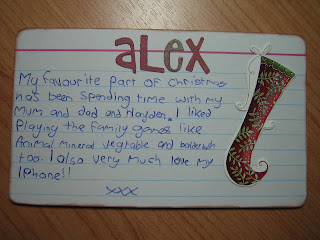 aLex
My favourite part of Christmas
has been spending time with my
Mum and dad and Hayden. I liked
Playing the family games like
Animal Mineral vegtable and
too. I also very much love my
Iphone!!
xxx